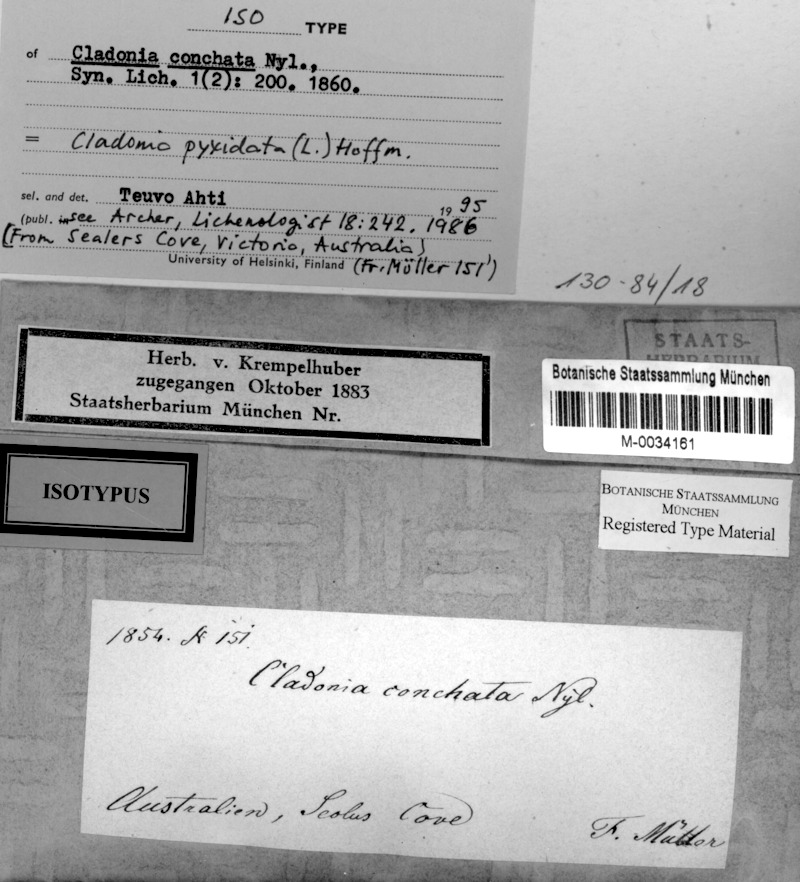 ISO TYPE
of Cladonia conchata Nyl.,
Syn. Lich. 1(2): 200. 1860.
= Cladonia pyxidata (L.) Hoffm.
sel. and det. Teuvo Ahti 1995
(publ. in see Archer, Lichenologist 18:242. 1986
[From Sealers Cove, Victoria, Australia]
University of Helsinki, Finland (Fr. Müller 151)
130-84/18
STAATS-
HERBARIUM
Herb. v. Krempelhuber
zugegangen Oktober 1883
Staatsherbarium München Nr.
Botanische Staatssammlung München
M-0034161
ISOTYPUS
BOTANISCHE STAATSSAMMLUNG
MÜNCHEN
Registered Type Material
1854. № 151.
Cladonia conchata Nyl.
Australien, Scolus Cove
F. Müller